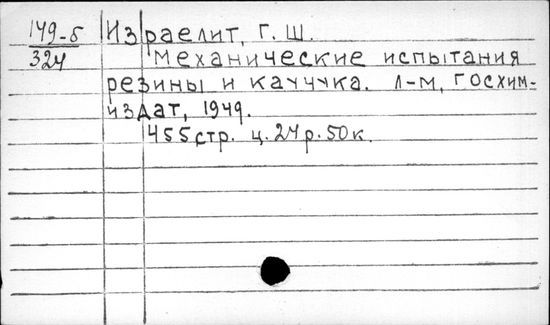 149-5 Израелит, Г. Ш.
324 Механические испытания
резины и каучука. Л-М, Госхим-
издат, 1949.
455стр. ц. 24р. 50к.